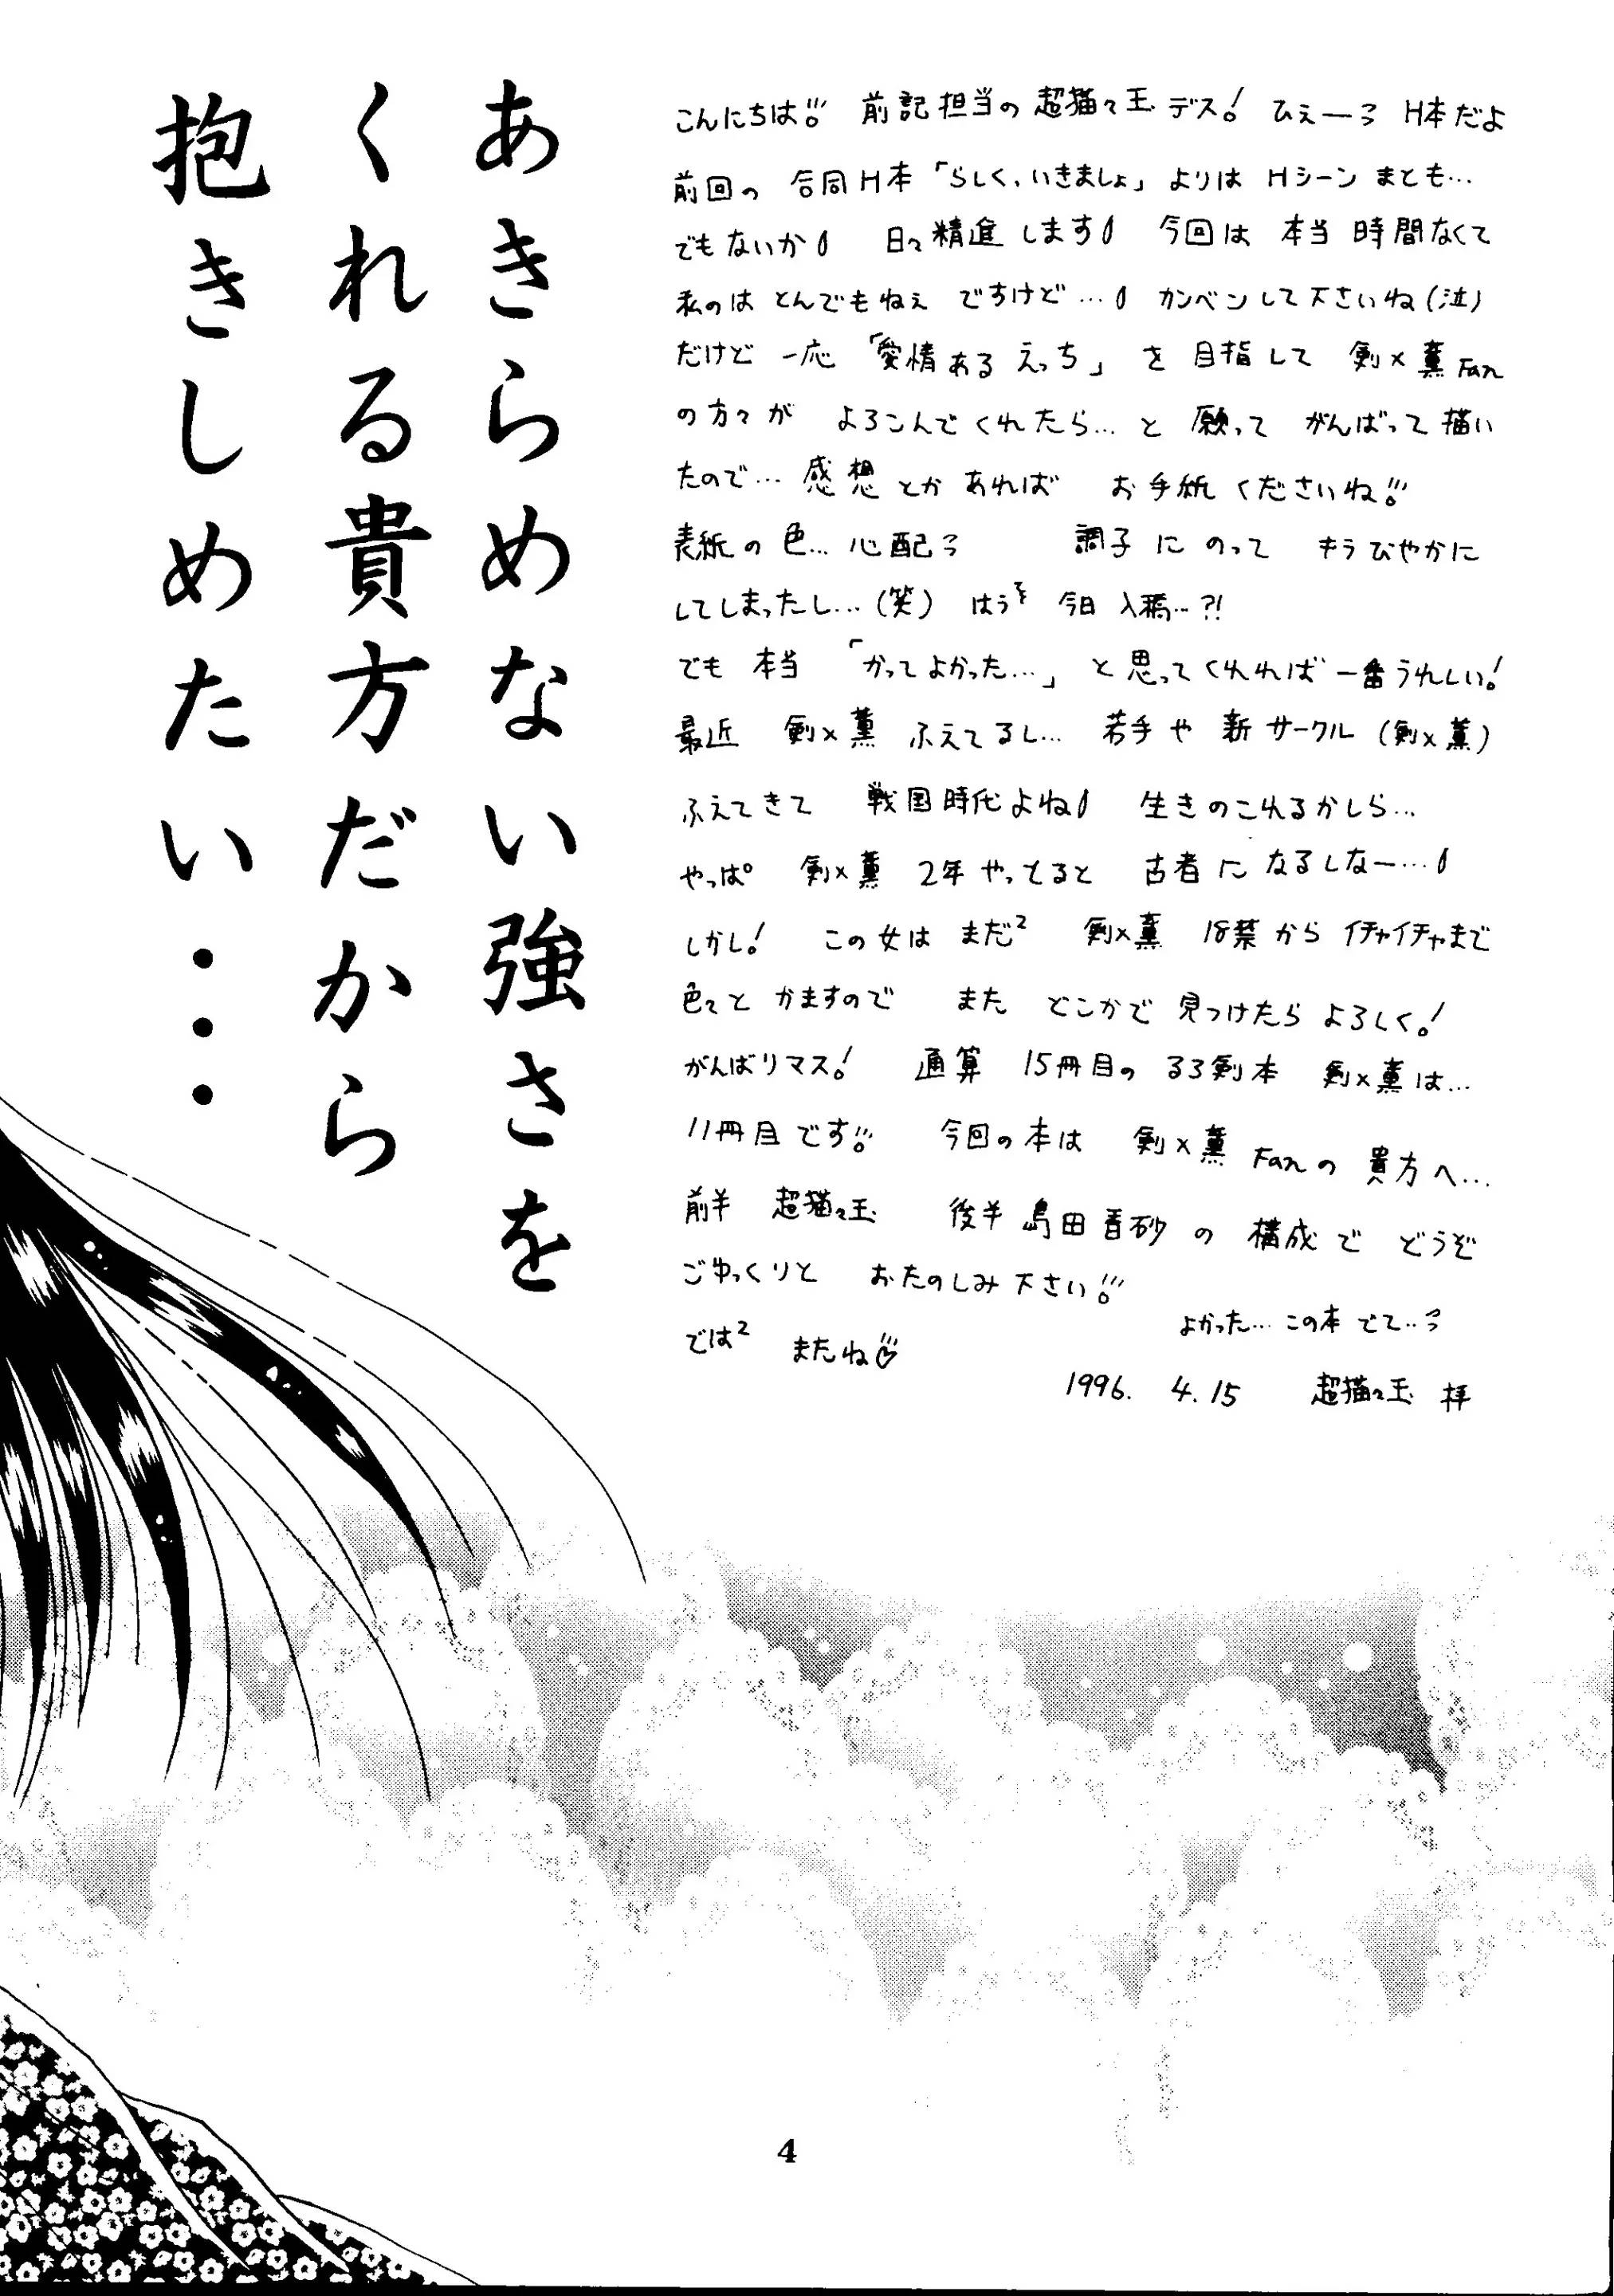 あきらめない強さを
くれる貴方だから
抱きしめたい・・・
こんにちは!! 前記担当の超猫々玉デス! ひえーっ H本だよ
前回の 合同H本「らしく、いきましょ」よりは Hシーン まとも…
でもないか 日々精進します 今回は 本当 時間なくて
私のは とんでもねぇ ですけど… カンベンして下さいね(泣)
だけど 一応 「愛情ある えっち」を 目指して 剣×薫 Fan
の方々が よろこんでくれたら… と 願って がんばって描い
たので… 感想とかあれば お手紙くださいね!!
表紙の色… 心配っ 調子にのって きらびやかに
してしまったし…(笑) はうぞ 今日 入稿…?!
でも 本当 「かってよかった…」と思ってくれれば 一番うれしい!
最近 剣×薫 ふえてるし… 若手や 新サークル(剣×薫)
ふえてきて 戦国時代よね 生きのこれるかしら…
やっぱ 剣×薫 2年やってると 古者に なるしなー…
しかし! この女は まだ² 剣×薫 18禁から イチャイチャまで
色々と かますので また どこかで 見つけたら よろしく!
がんばリマス! 通算 15冊目の るろ剣本 剣×薫は…
11冊目です!! 今回の本は 剣×薫 Fanの 貴方へ…
前半 超猫々玉 後半 島田香砂の 構成で どうぞ
ごゆっくりと おたのしみ下さい!!!
よかった… この本 でて…っ
では² またね♡
1996. 4.15 超猫々玉 拝
4